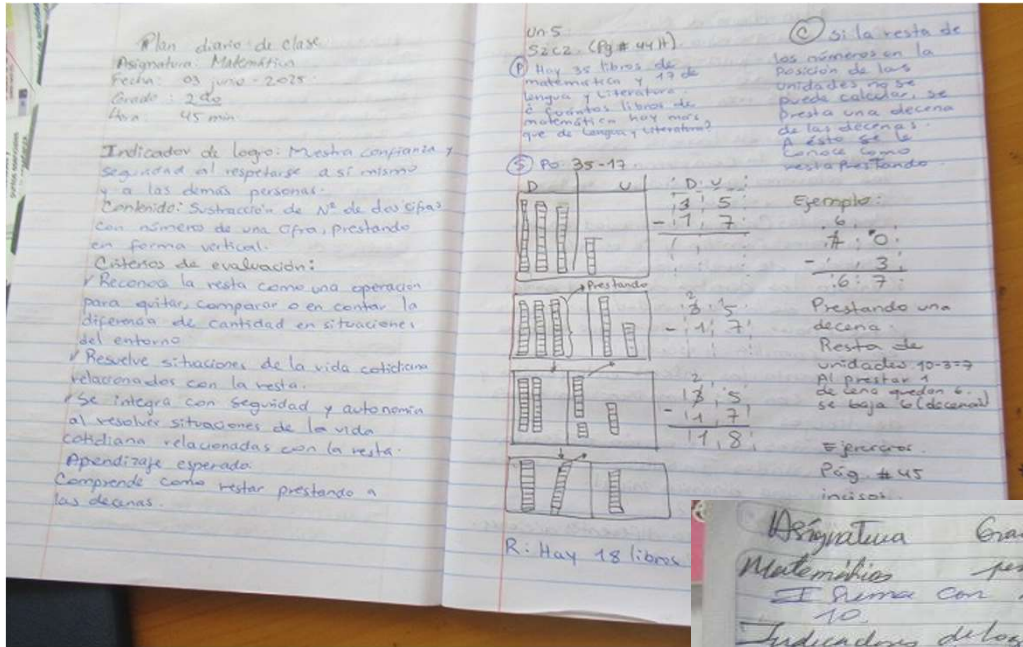 Plan diario de clase
Asignatura: Matemática
Fecha: 03 junio - 2025.
Grado: 2do
Hora: 45 min.
Indicador de logro: Muestra confianza y
seguridad al respetarse a sí mismo
y a las demás personas.
Contenido: Sustracción de Nº de dos cifras
con número de una cifra, prestando
en forma vertical.
Criterios de evaluación:
✓ Reconoce la resta como una operación
para quitar, comparar o encontrar la
diferencia de cantidad en situaciones
del entorno
✓ Resuelve situaciones de la vida cotidiana
relacionados con la resta.
✓ Se integra con seguridad y autonomía
al resolver situaciones de la vida
cotidiana relacionadas con la resta.
Apendizaje esperado.
Comprende como restar prestando a
las decenas.
Un 5
S2C2. (Pg # 44 A).
(P) Hay 35 libros de
matemática y 17 de
Lengua y Literatura.
¿Cuántos libros de
matemática hay más
que de Lengua y Literatura?
(S) PO: 35-17
D U
D U
3 5
- 1 7
Prestando
2
3 15
- 1 7
2
13 5
- 1 7
1 8
R: Hay 18 libros
(C) Si la resta de
los números en la
posición de las
unidades no se
puede calcular, se
presta una decena
de las decenas.
A ésto se le
conoce como
resta prestando.
Ejemplo:
6
7 10
- 3
6 7
Prestando una
decena
Resta de
unidades 10-3=7
Al prestar 1
decena quedan 6.
se baja 6 (decenas)
Ejercicios.
Pág. # 45
incisos
Asignatura
Matemáticas
Suma con
10.
Indicadores de